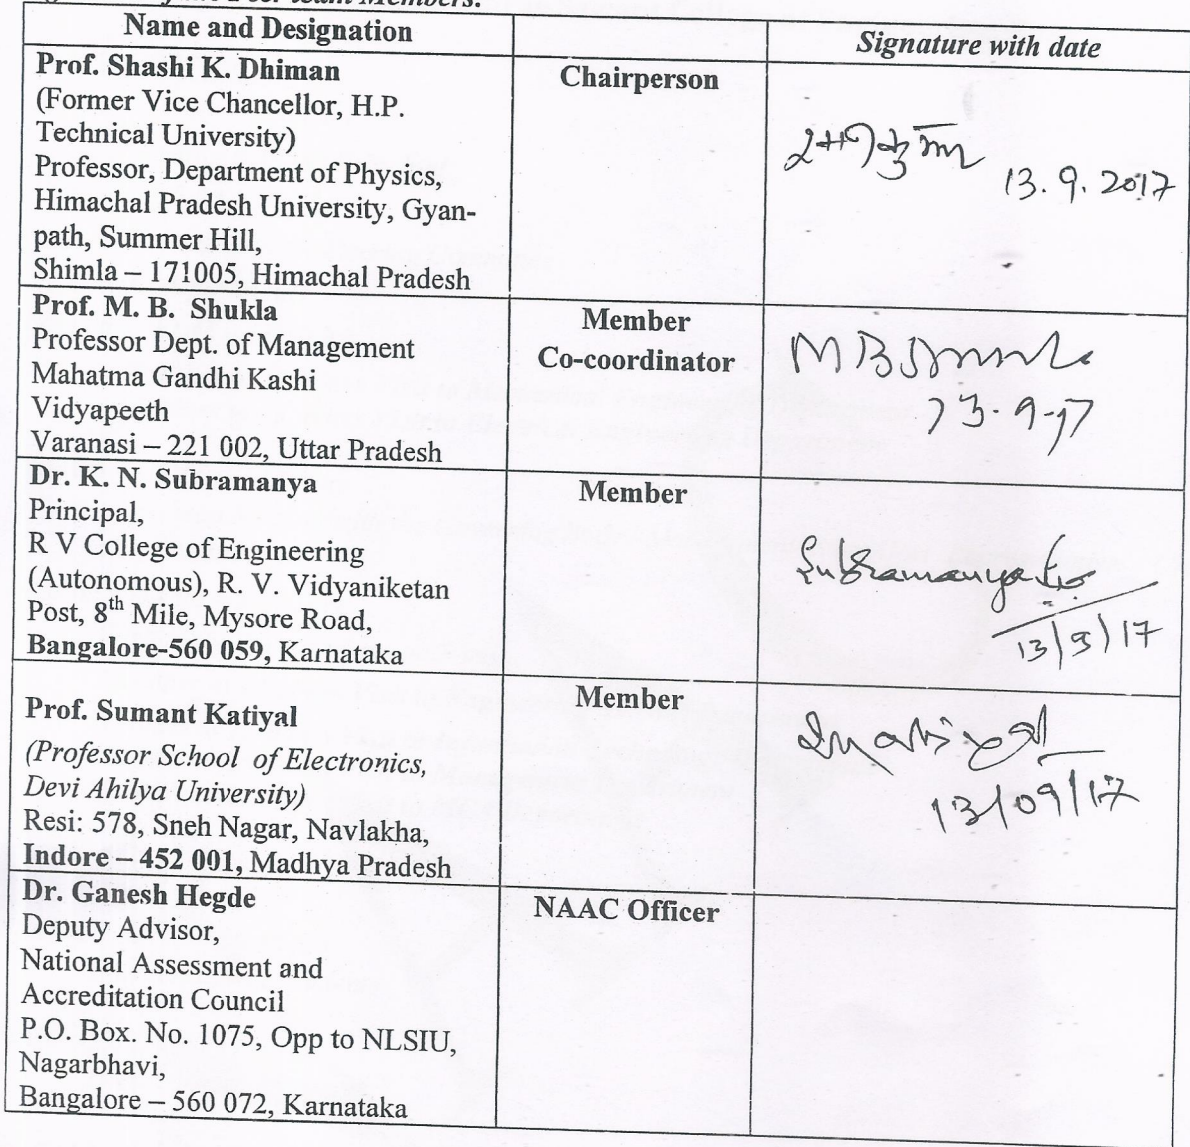 Team Members:
Name and Designation
Signature with date
Prof. Shashi K. Dhiman
(Former Vice Chancellor, H.P.
Technical University)
Professor, Department of Physics,
Himachal Pradesh University, Gyan-
path, Summer Hill,
Shimla – 171005, Himachal Pradesh
Chairperson
13.9.2017
Prof. M. B. Shukla
Professor Dept. of Management
Mahatma Gandhi Kashi
Vidyapeeth
Varanasi – 221 002, Uttar Pradesh
Member
Co-coordinator
13-9-17
Dr. K. N. Subramanya
Principal,
R V College of Engineering
(Autonomous), R. V. Vidyaniketan
Post, 8th Mile, Mysore Road,
Bangalore-560 059, Karnataka
Member
Subramanya
13/9/17
Prof. Sumant Katiyal
(Professor School of Electronics,
Devi Ahilya University)
Resi: 578, Sneh Nagar, Navlakha,
Indore – 452 001, Madhya Pradesh
Member
13/09/17
Dr. Ganesh Hegde
Deputy Advisor,
National Assessment and
Accreditation Council
P.O. Box. No. 1075, Opp to NLSIU,
Nagarbhavi,
Bangalore – 560 072, Karnataka
NAAC Officer